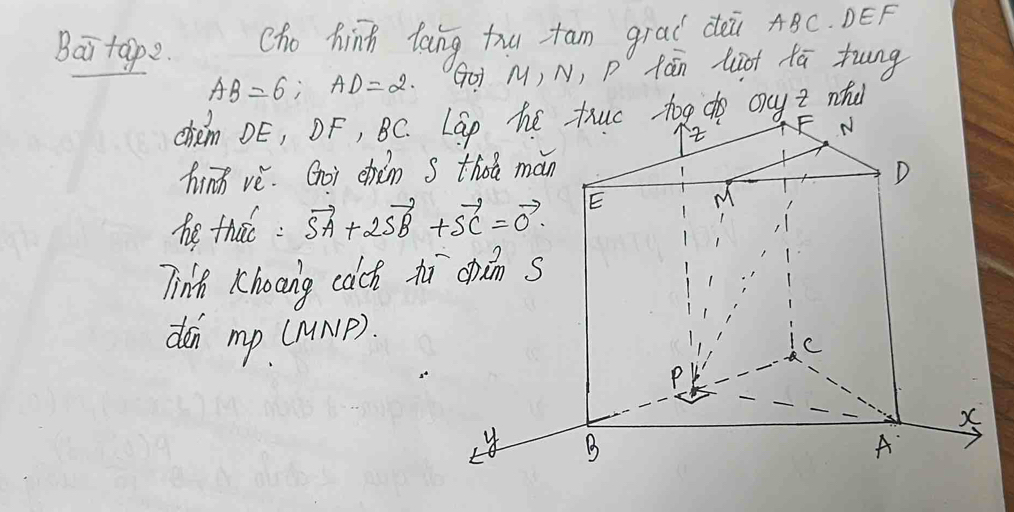 Bài tập 2. Cho hình lăng trụ tam giác đều ABC.DEF
AB = 6; AD = 2. Gọi M, N, P lần lượt là trung
điểm DE, DF, BC. Lập hệ trục toạ độ oxyz như
hình vẽ. Gọi điểm S thoả mãn
hệ thức: \vec{SA} + 2\vec{SB} + \vec{SC} = \vec{O}
Tính khoảng cách từ điểm S
đến mp (MNP).
z
F
N
E
M
D
P
C
y
B
A
x